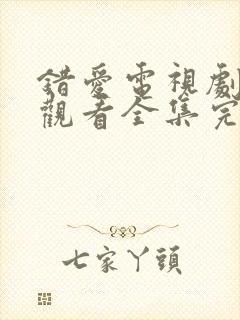 錯愛電視劇
觀看全集完
七家丫頭